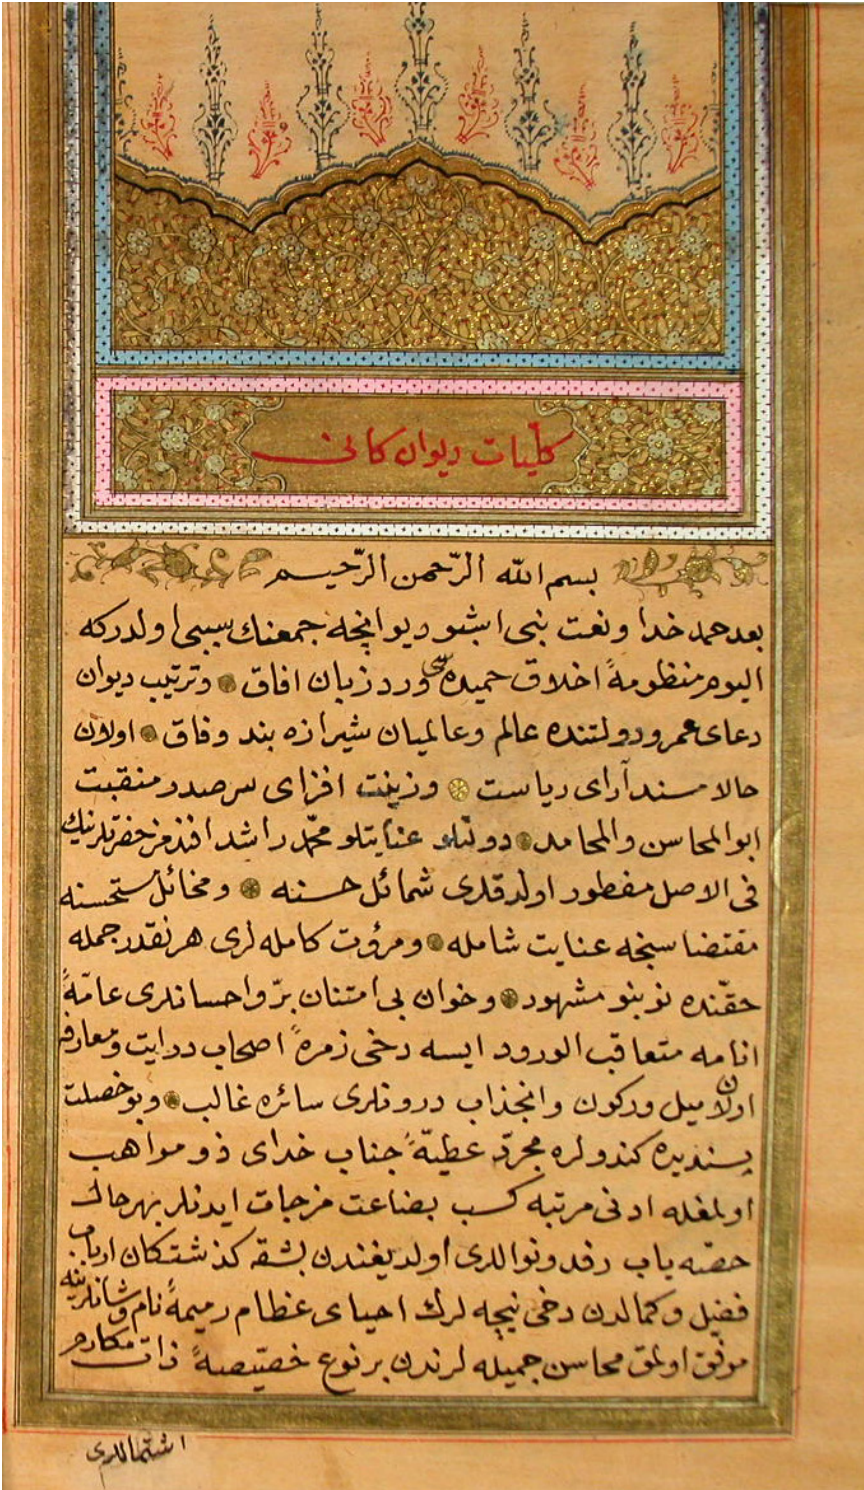 كلّيات ديوان كانى
بسم الله الرّحمن الرّحيم
بعد حمد خدا و نعت نبى اشبو ديوانچه جمعنك سببى اولدركه
اليوم منظومهٔ اخلاق حميده‌سى ورد زبان افاق و ترتيب ديوان
دعاى عمر و دولتنده عالم و عالميان شيرازه بند وفاق اولان
حالا مسند آراى رياست و زينت افزاى سر صدر منقبت
ابو المحاسن والمحامد دولتلو عنايتلو محمّد راشد افندمز حضرتلرينك
فى الاصل مفطور اولدقلرى شمائل حسنه و مخائل مستحسنه
مقتضاسنجه عنايت شامله و مروّت كامله لرى هر نقدر جمله
حقّنده نو بنو مشهود و خوان بى امتنان برّ و احسانلرى عامّهٔ
انامه متعاقب الورود ايسه دخى زمرهٔ اصحاب درايت و معارفه
اولان ميل و ركون و انجذاب درونلرى سائره غالب و بو خصلت
پسنديده كندولره مجرّد عطيّهٔ جناب خداى ذو مواهب
اولمغله ادنى مرتبه كسب بضاعت مزجات ايدنلر بهرحال
حصّه ياب رفد و نواللرى اولديغندن بشقه كذشتكان ارباب
فضل و كمالدن دخى نيجه لرك احياى عظام رميمهٔ نام و شانلرينه
موفق اولمق محاسن جميله لرندن بر نوع خصّيصهٔ ذات مكارم
اشتماللرى